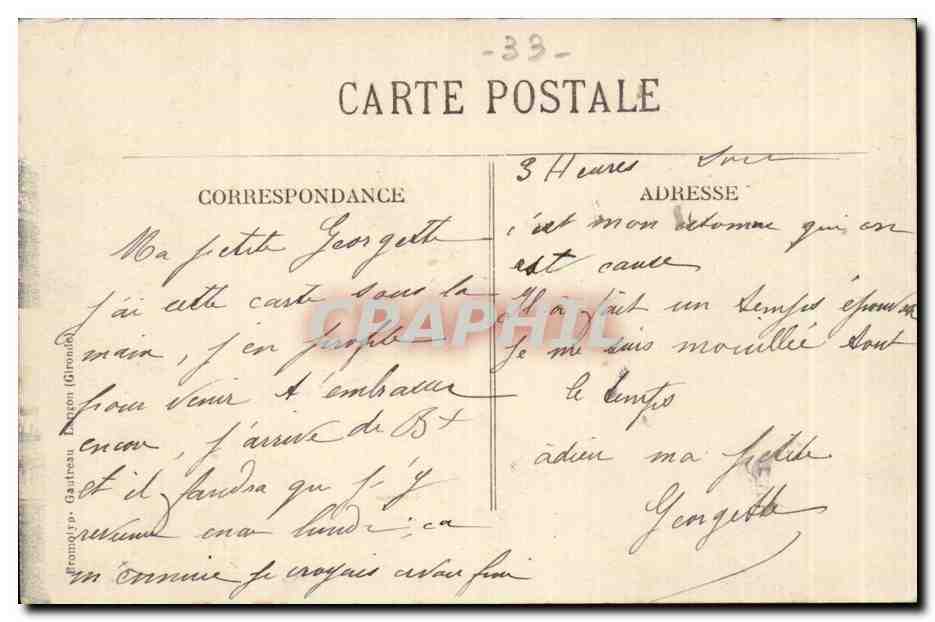 -33-
CARTE POSTALE
CORRESPONDANCE
Ma petite Georgette
j'ai cette carte sous la
main, j'en profite
pour venir t'embrasser
encore, j'arrive de Bx
et il faudra que j'y
revienne encor lundi; ça
m'ennuie je croyais avoir fini
3 Heures Soir
ADRESSE
c'est mon estomac qui en
est cause
Il a fait un temps
je me suis mouillée tout
le temps
adieu ma petite
Georgette
Bromotyp. Gautreau Langon (Gironde)
CPAPHIL